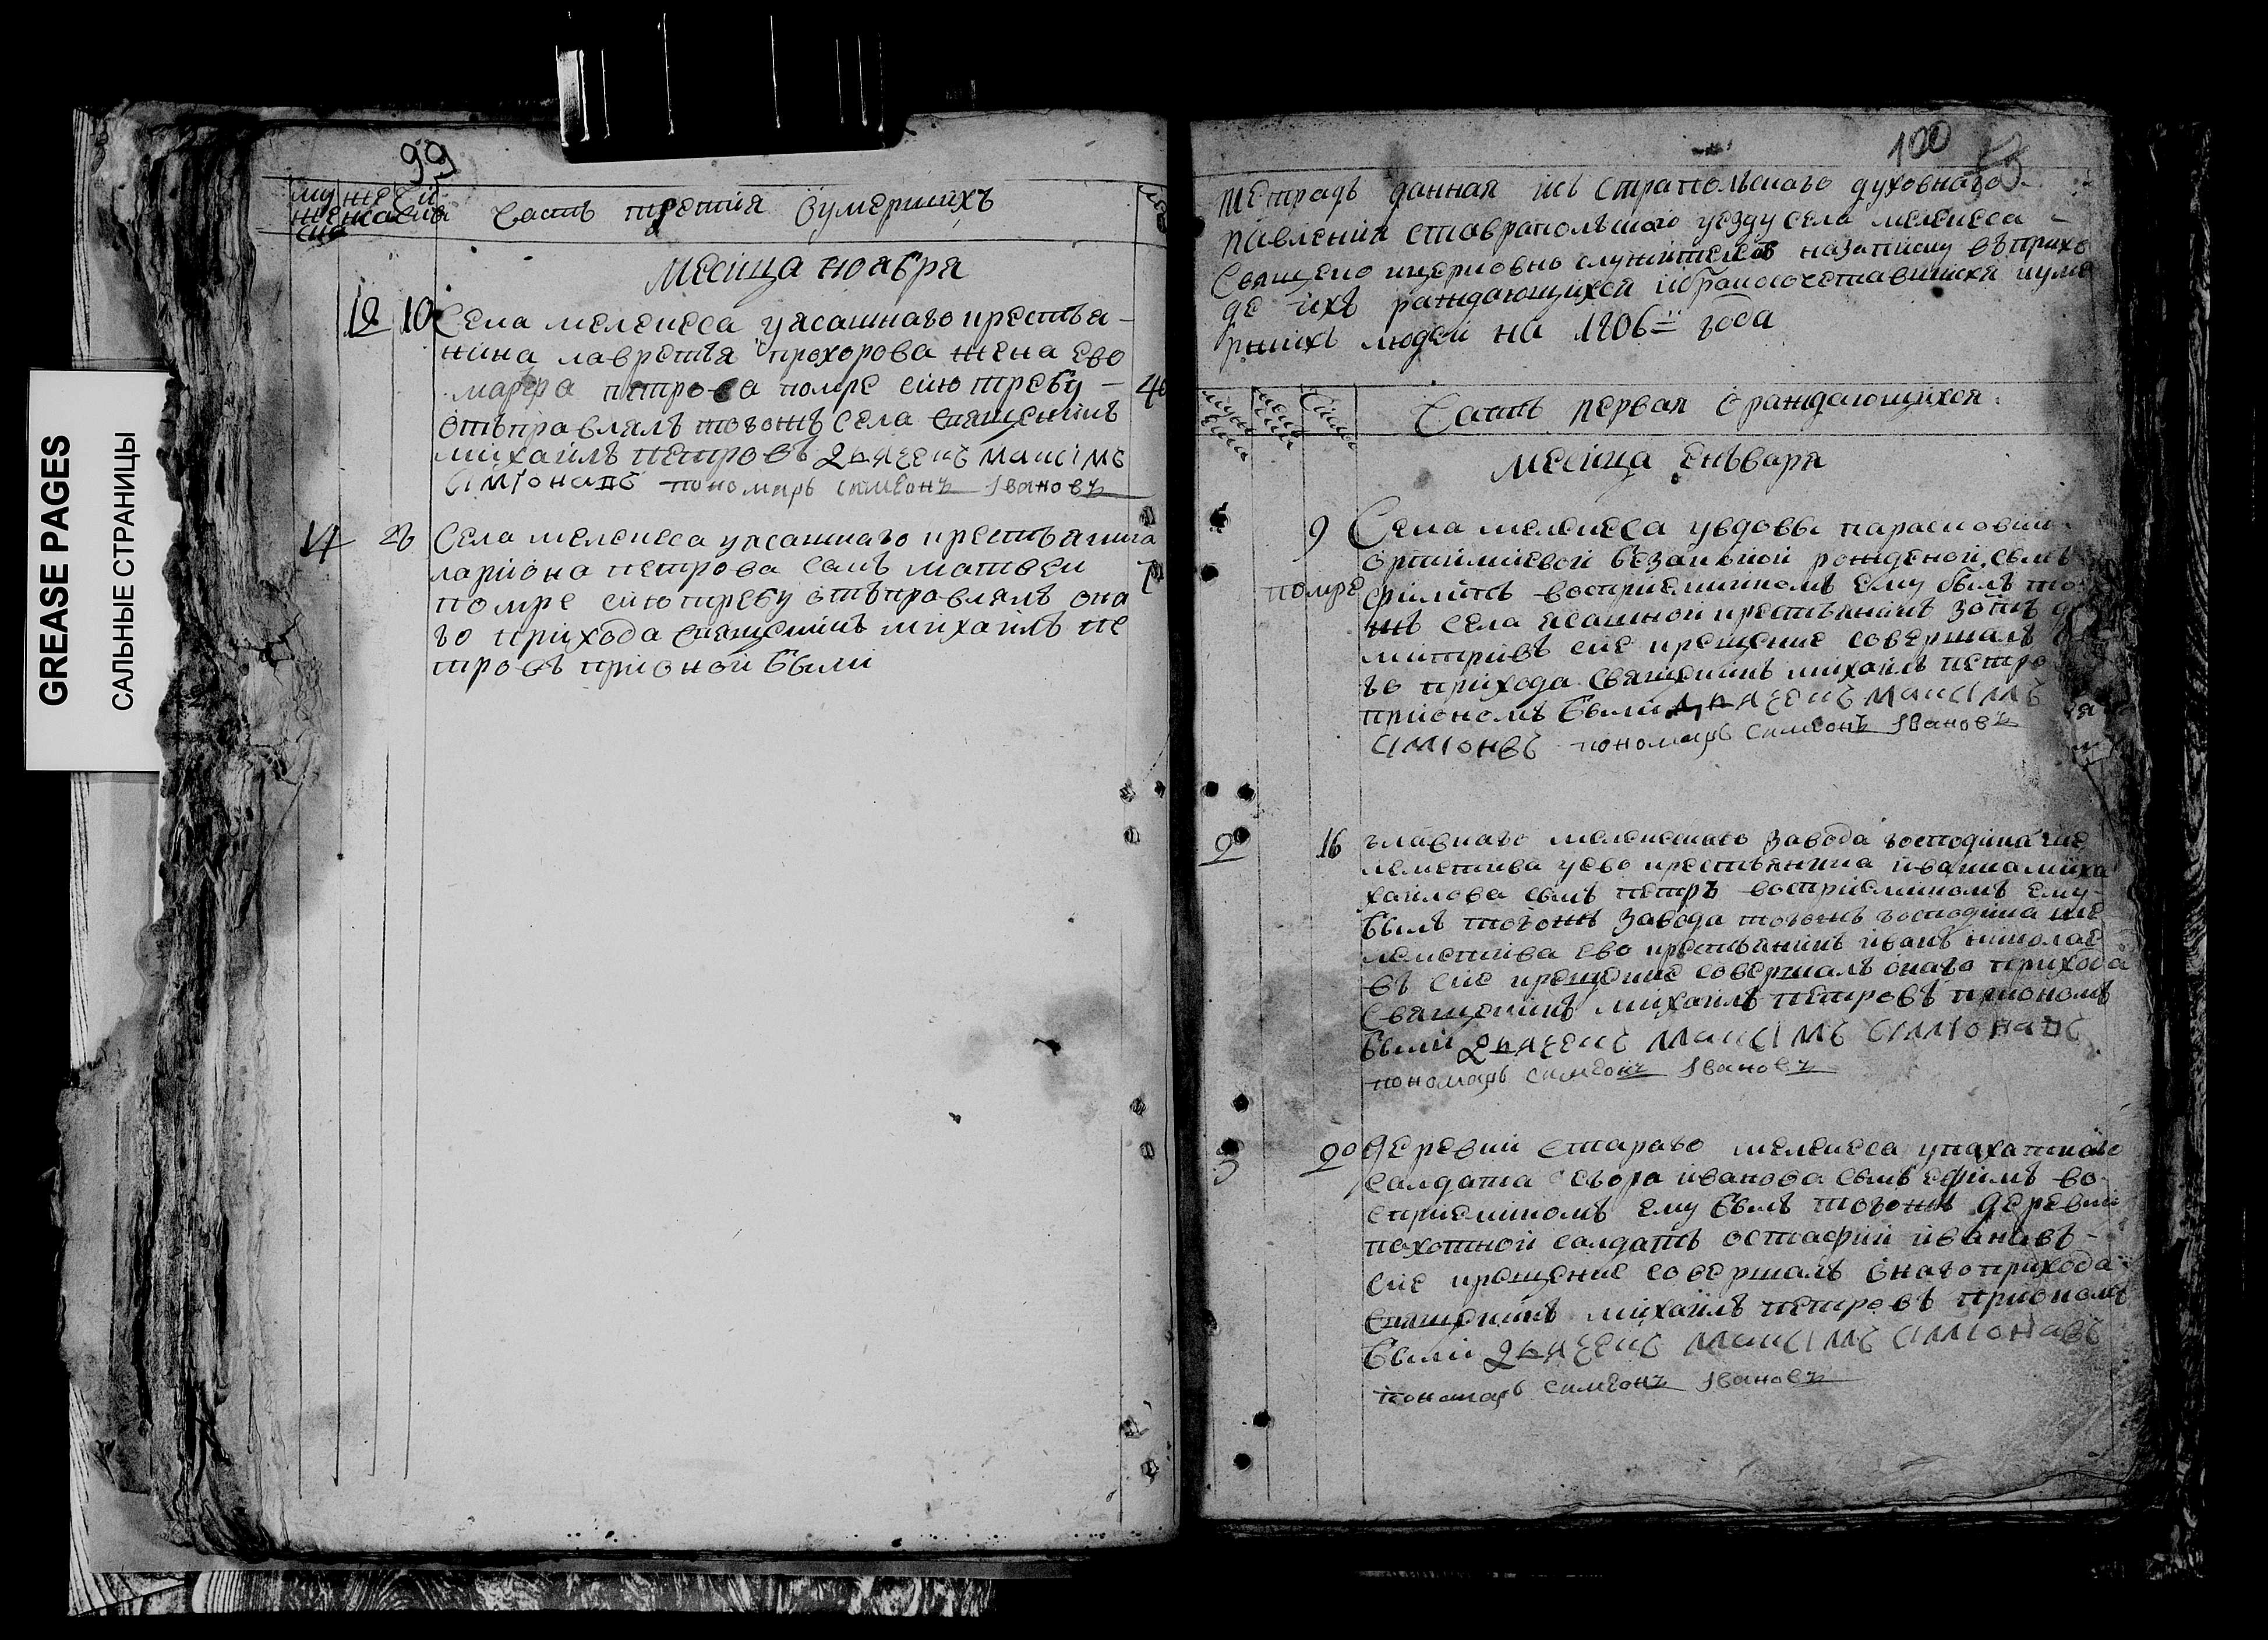 GREASE PAGES
САЛЬНЫЕ СТРАНИЦЫ
99
Часть третия о умершихъ
Месяца ноября
12 10 Села мелекеса у ясашнаго крестья-
нина лаврентья прохорова жена ево
марфа петрова помре сию требу - 40
отъправлялъ тогожъ села священникъ
михаилъ петровъ дьячекъ Максiмъ
Сiмiонавъ пономарь симеонъ Ивановъ
14 26 Села мелекеса у ясашнаго крестьянина
лариона петрова сынъ матвеи
помре сию требу отъправлялъ она
го прихода священникъ михаилъ пе
тровъ при оной были
100
Тетрадь данная исъ страпольскаго духовнаго
правления ставрапольскаго уезду села мелекеса
Священо ицерковно служителевъ на записку въ прихо
де ихъ раждающихся ибракосочетавшихся иуме
ршихъ людеи на 1806 года
Часть первая о раждающихся
Месяца Енъваря
9 Села мелекеса у вдовы парасковии
ортимиевой безаконой рожденой сынъ
помре филипъ восприемникомъ ему былъ то
жъ села ясашной крестьянинъ
митриевъ сие крещение совершалъ
го прихода священникъ михаилъ петро
при ономъ были дьячекъ Максiмъ
Сiмiонвъ пономарь симеонъ Ивановъ
2 16 главнаго мелекескаго завода господина ше
леметива у ево крестьянина ивана миха
хаилова сынъ петръ восприемникомъ ему
былъ тогожъ завода тогожъ господина ше
леметива ево крестьянинъ иванъ николае
въ сие крещение совершалъ онаго прихода
священникъ михаилъ петровъ при ономъ
были дьячекъ Максiмъ Сiмiонавъ
пономарь симеонъ Ивановъ
3 20 деревни старого мелекеса у пахатнаго
салдата егора иванова сынъ ефимъ во
сприемникомъ ему былъ тогожъ деревни
пахотной салдатъ остафии ивановъ
сие крещение совершалъ онаго прихода
священникъ михаилъ петровъ при ономъ
были дьячекъ Максiмъ Сiмiонавъ
пономарь симеонъ Ивановъ